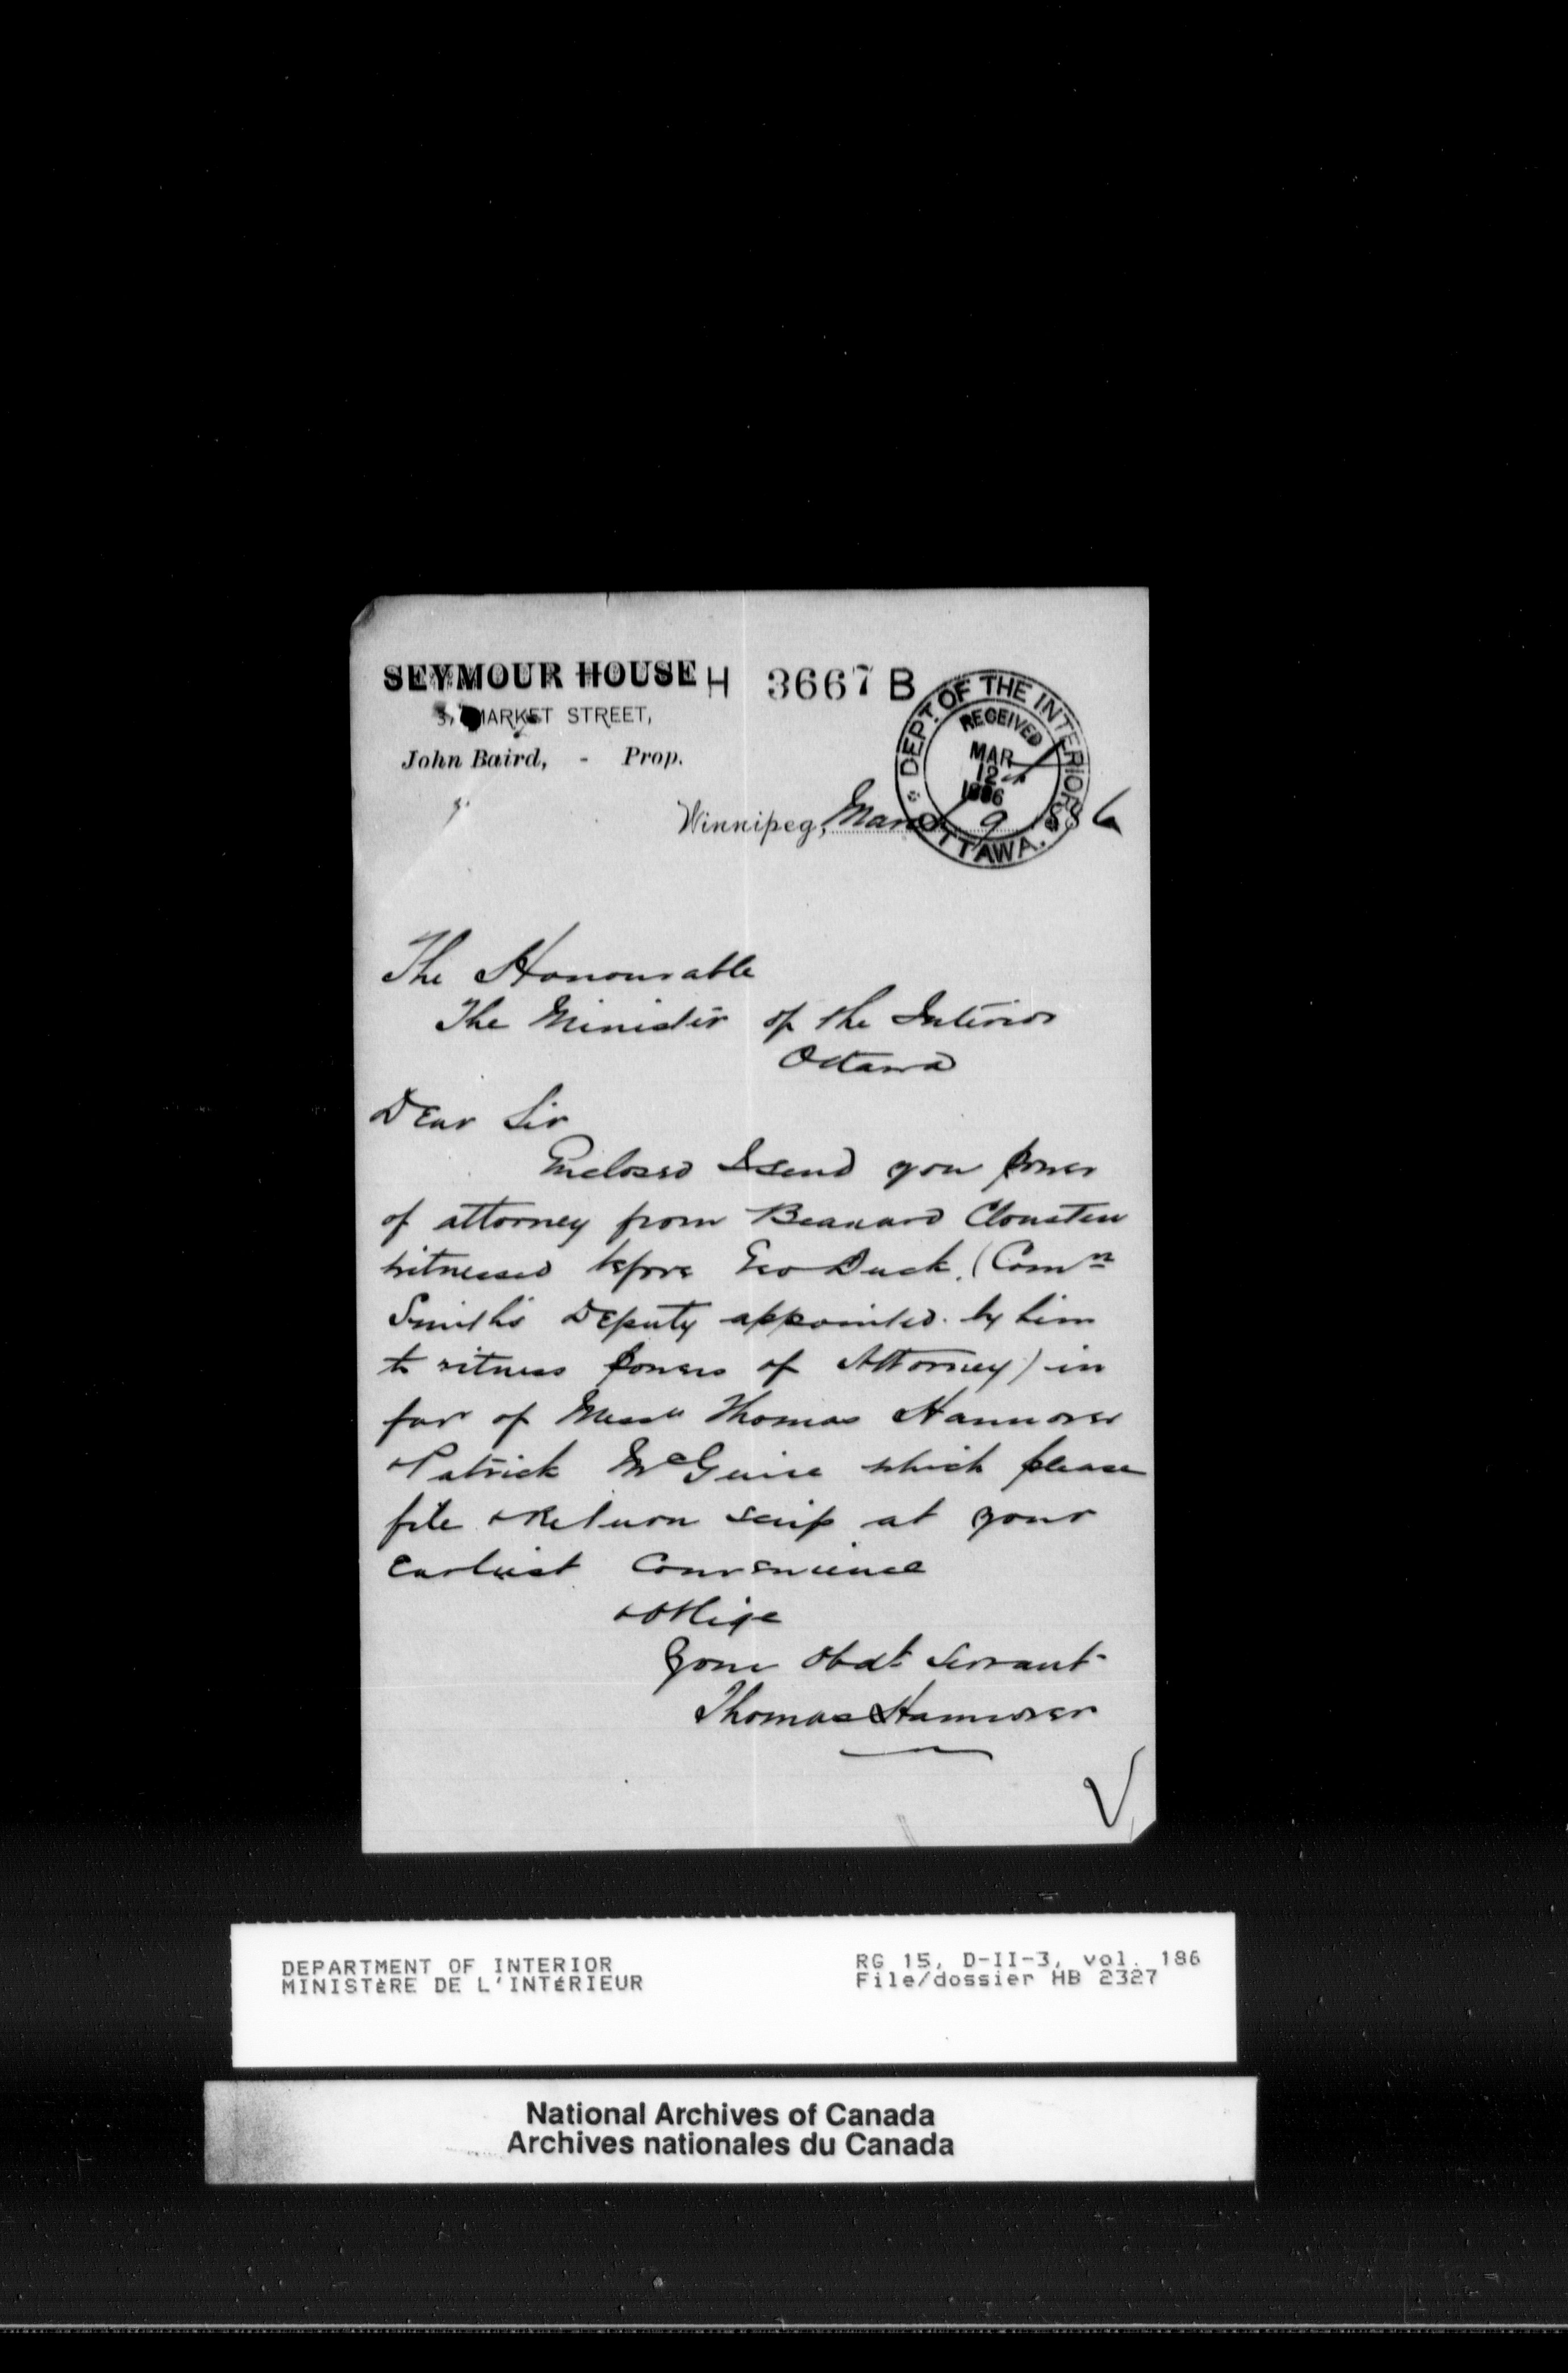 SEYMOUR HOUSE H 3667 B
MARKET STREET,
John Baird, - Prop.
DEPT. OF THE INTERIOR
RECEIVED
MAR
12
1886
OTTAWA.
Winnipeg, March 9 1886
The Honourable
The Minister of the Interior
Ottawa
Dear Sir
Enclosed I send you power
of attorney from Bearnard Clousten
witnessed before Geo Duck. (Comn
Smith's Deputy appointed by him
to witness powers of Attorney) in
favr of Messrs Thomas Hannover
& Patrick McGuire which please
file & Return scrip at your
Earliest Convenience
& Oblige
Your Obdt Servant
Thomas Hannover
DEPARTMENT OF INTERIOR
MINISTÈRE DE L'INTÉRIEUR
RG 15, D-II-3, vol. 186
File/dossier HB 2327
National Archives of Canada
Archives nationales du Canada